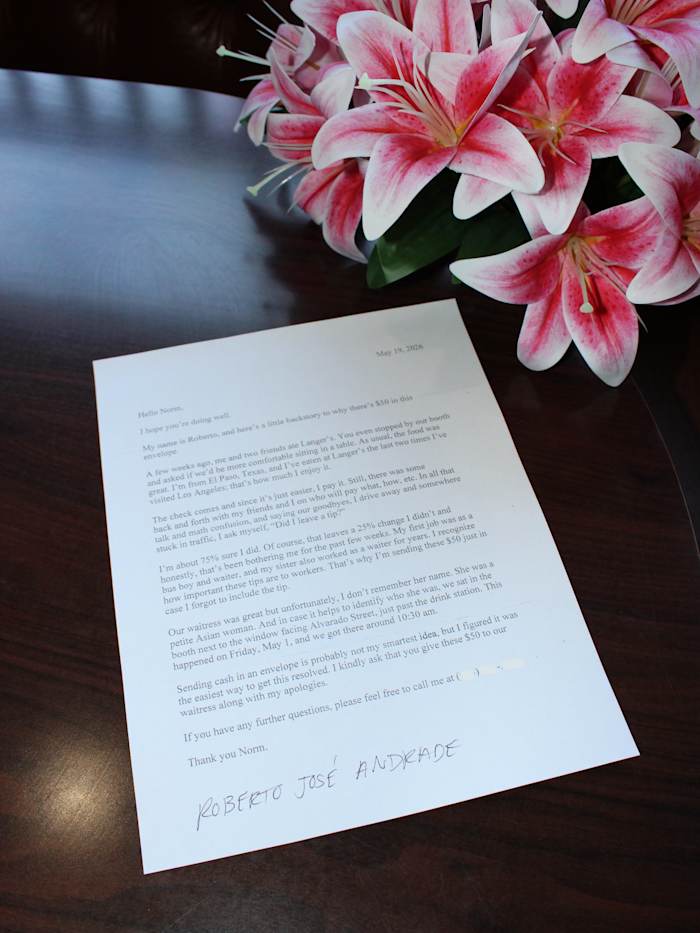 May 19, 2026
Hello Norm,
I hope you're doing well.
My name is Roberto, and here's a little backstory to why there's $50 in this
envelope.
A few weeks ago, me and two friends ate Langer's. You even stopped by our booth
and asked if we'd be more comfortable sitting in a table. As usual, the food was
great. I'm from El Paso, Texas, and I've eaten at Langer's the last two times I've
visited Los Angeles; that's how much I enjoy it.
The check comes and since it's just easier, I pay it. Still, there was some
back and forth with my friends and I on who will pay what, how, etc. In all that
talk and math confusion, and saying our goodbyes, I drive away and somewhere
stuck in traffic, I ask myself, "Did I leave a tip?"
I'm about 75% sure I did. Of course, that leaves a 25% change I didn't and
honestly, that's been bothering me for the past few weeks. My first job was as a
bus boy and waiter, and my sister also worked as a waiter for years. I recognize
how important these tips are to workers. That's why I'm sending these $50 just in
case I forgot to include the tip.
Our waitress was great but unfortunately, I don't remember her name. She was a
petite Asian woman. And in case it helps to identify who she was, we sat in the
booth next to the window facing Alvarado Street, just past the drink station. This
happened on Friday, May 1, and we got there around 10:30 am.
Sending cash in an envelope is probably not my smartest idea, but I figured it was
the easiest way to get this resolved. I kindly ask that you give these $50 to our
waitress along with my apologies.
If you have any further questions, please feel free to call me at (
Thank you Norm.
ROBERTO JOSÉ ANDRADE